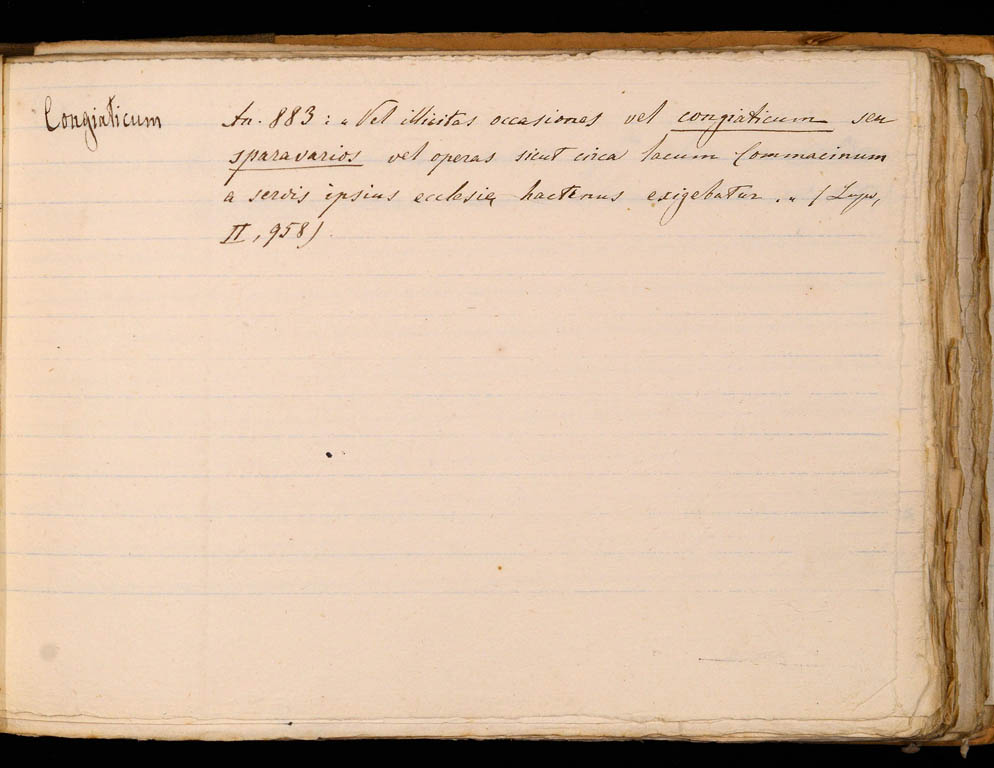 Congiaticum
An. 883 : " Vel illicitas occasiones vel congiaticum seu
sparavarios vel operas sicut circa lacum Commacinum
a servis ipsius ecclesię hactenus exigebatur. " ( Lupi,
II, 958)